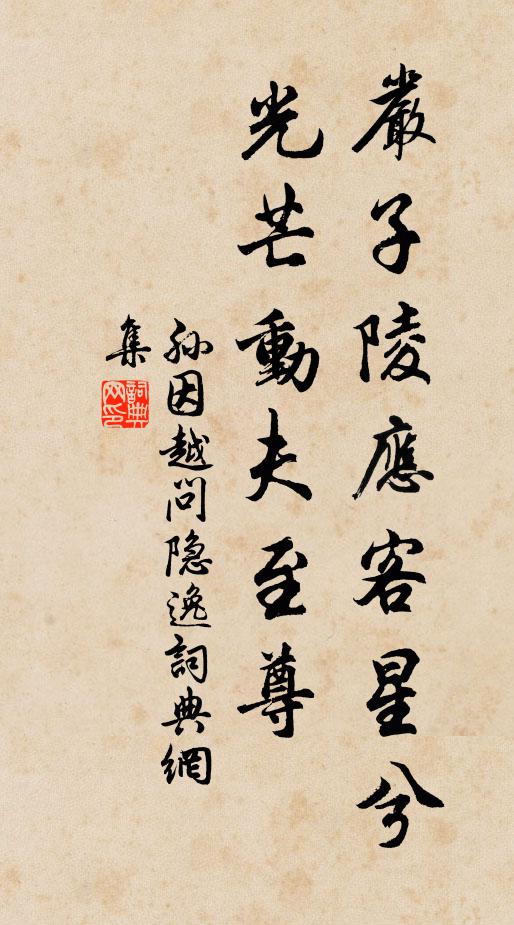 嚴子陵應客星兮
光芒動夫至尊
孙因越问隐逸詞典網
集
詞典網印